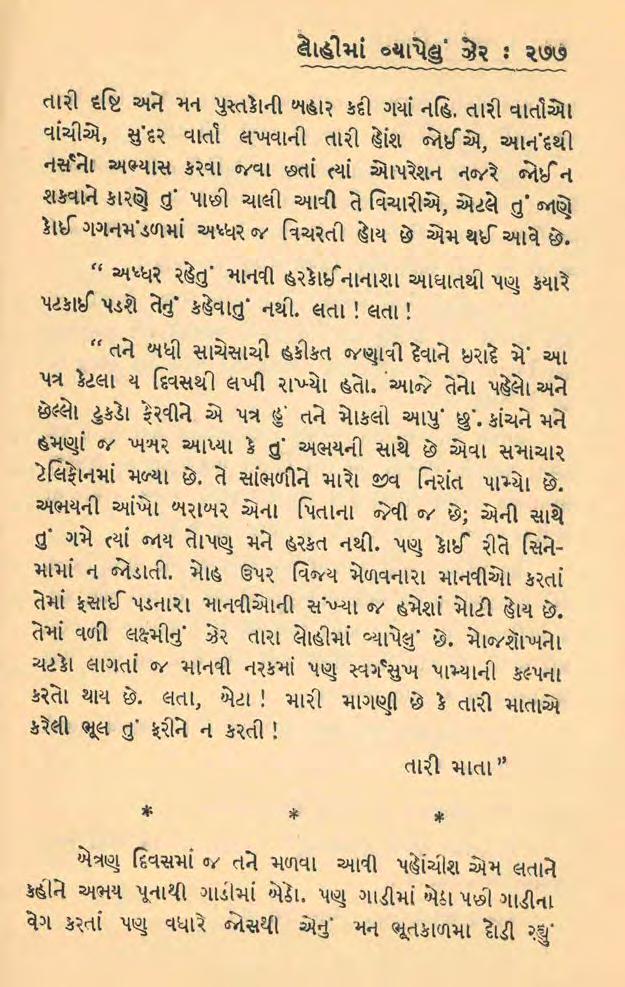 લોહીમાં વ્યાપેલું ઝેર : ૨૭૭
તારી દૃષ્ટિ અને મન પુસ્તકોની બહાર કદી ગયાં નહિ. તારી વાર્તાઓ
વાંચીએ, સુંદર વાર્તા લખવાની તારી હોંશ જોઈએ, આનંદથી
નર્સનો અભ્યાસ કરવા જવા છતાં ત્યાં ઓપરેશન નજરે જોઈ ન
શકવાને કારણે તું પાછી ચાલી આવી તે વિચારીએ, એટલે તું જાણે
કોઈ ગગનમંડળમાં અધ્ધર જ વિચરતી હોય છે એમ થઈ આવે છે.
“ અધ્ધર રહેતું માનવી હરકોઈ નાનાશા આઘાતથી પણ કયારે
પટકાઈ પડશે તેનું કહેવાતું નથી. લતા ! લતા !
“ તને બધી સાચેસાચી હકીકત જણાવી દેવાને ઇરાદે મેં આ
પત્ર કેટલા ય દિવસથી લખી રાખ્યો હતો. આજે તેનો પહેલો અને
છેલ્લો ટુકડો ફેરવીને એ પત્ર હું તને મોકલી આપું છું. કાંચને મને
હમણાં જ ખબર આપ્યા કે તું અભયની સાથે છે એવા સમાચાર
ટેલિફોનમાં મળ્યા છે. તે સાંભળીને મારો જીવ નિરાંત પામ્યો છે.
અભયની આંખો બરાબર એના પિતાના જેવી જ છે; એની સાથે
તું ગમે ત્યાં જાય તોપણ મને હરકત નથી. પણ કોઈ રીતે સિને-
મામાં ન જોડાતી. મોહ ઉપર વિજય મેળવનારા માનવીઓ કરતાં
તેમાં ફસાઈ પડનારા માનવીઓની સંખ્યા જ હમેશાં મોટી હોય છે.
તેમાં વળી લક્ષ્મીનું ઝેર તારા લોહીમાં વ્યાપેલું છે. મોજશોખનો
ચટકો લાગતાં જ માનવી નરકમાં પણ સ્વર્ગસુખ પામ્યાની કલ્પના
કરતો થાય છે. લતા, બેટા ! મારી માગણી છે કે તારી માતાએ
કરેલી ભૂલ તું ફરીને ન કરતી !
તારી માતા”
* * *
બેત્રણ દિવસમાં જ તને મળવા આવી પહોંચીશ એમ લતાને
કહીને અભય પૂનાથી ગાડીમાં બેઠો. પણ ગાડીમાં બેઠા પછી ગાડીના
વેગ કરતાં પણ વધારે જોસથી એનું મન ભૂતકાળમા દોડી રહ્યું